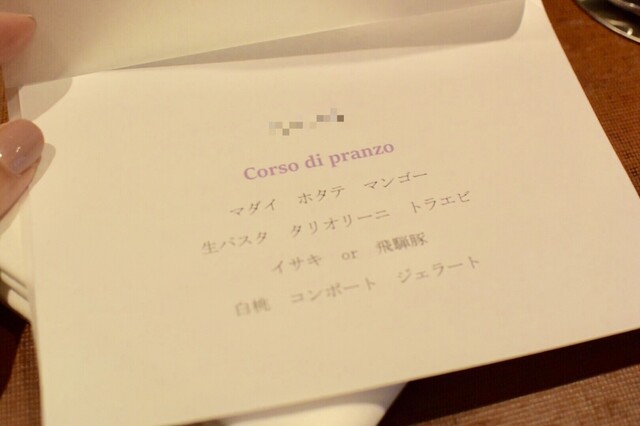 Corso di pranzo
マダイ ホタテ マンゴー
生パスタ タリオリーニ トラエビ
イサキ or 飛騨豚
白桃 コンポート ジェラート